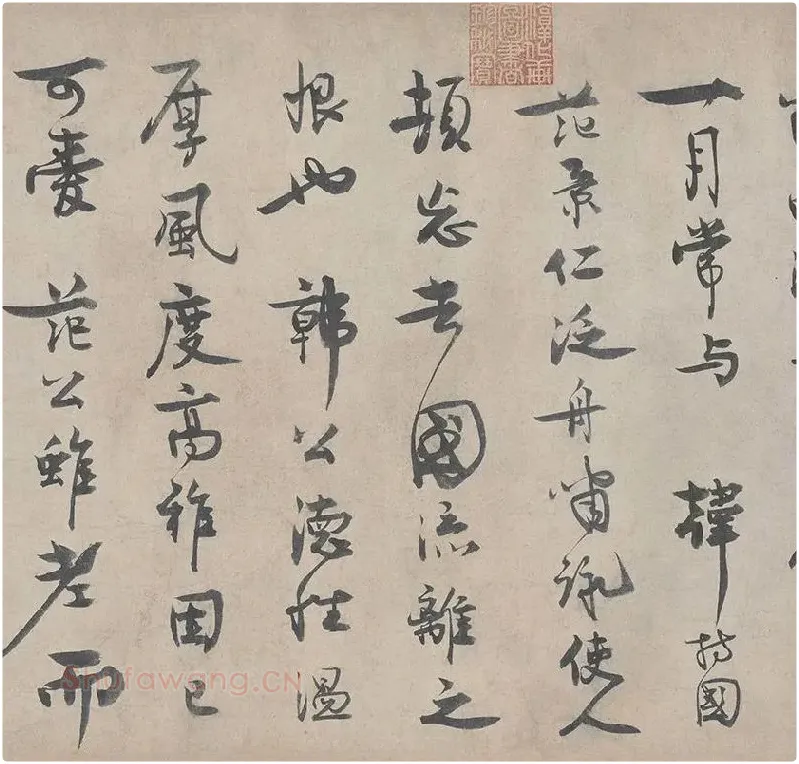 一月常与 韓持國
范景仁泛舟嘯詠使人
頓忘去國流離之
恨也 韓公德性溫
厚風度高雅固已
可愛 范公雖老而
Shufawang.CN